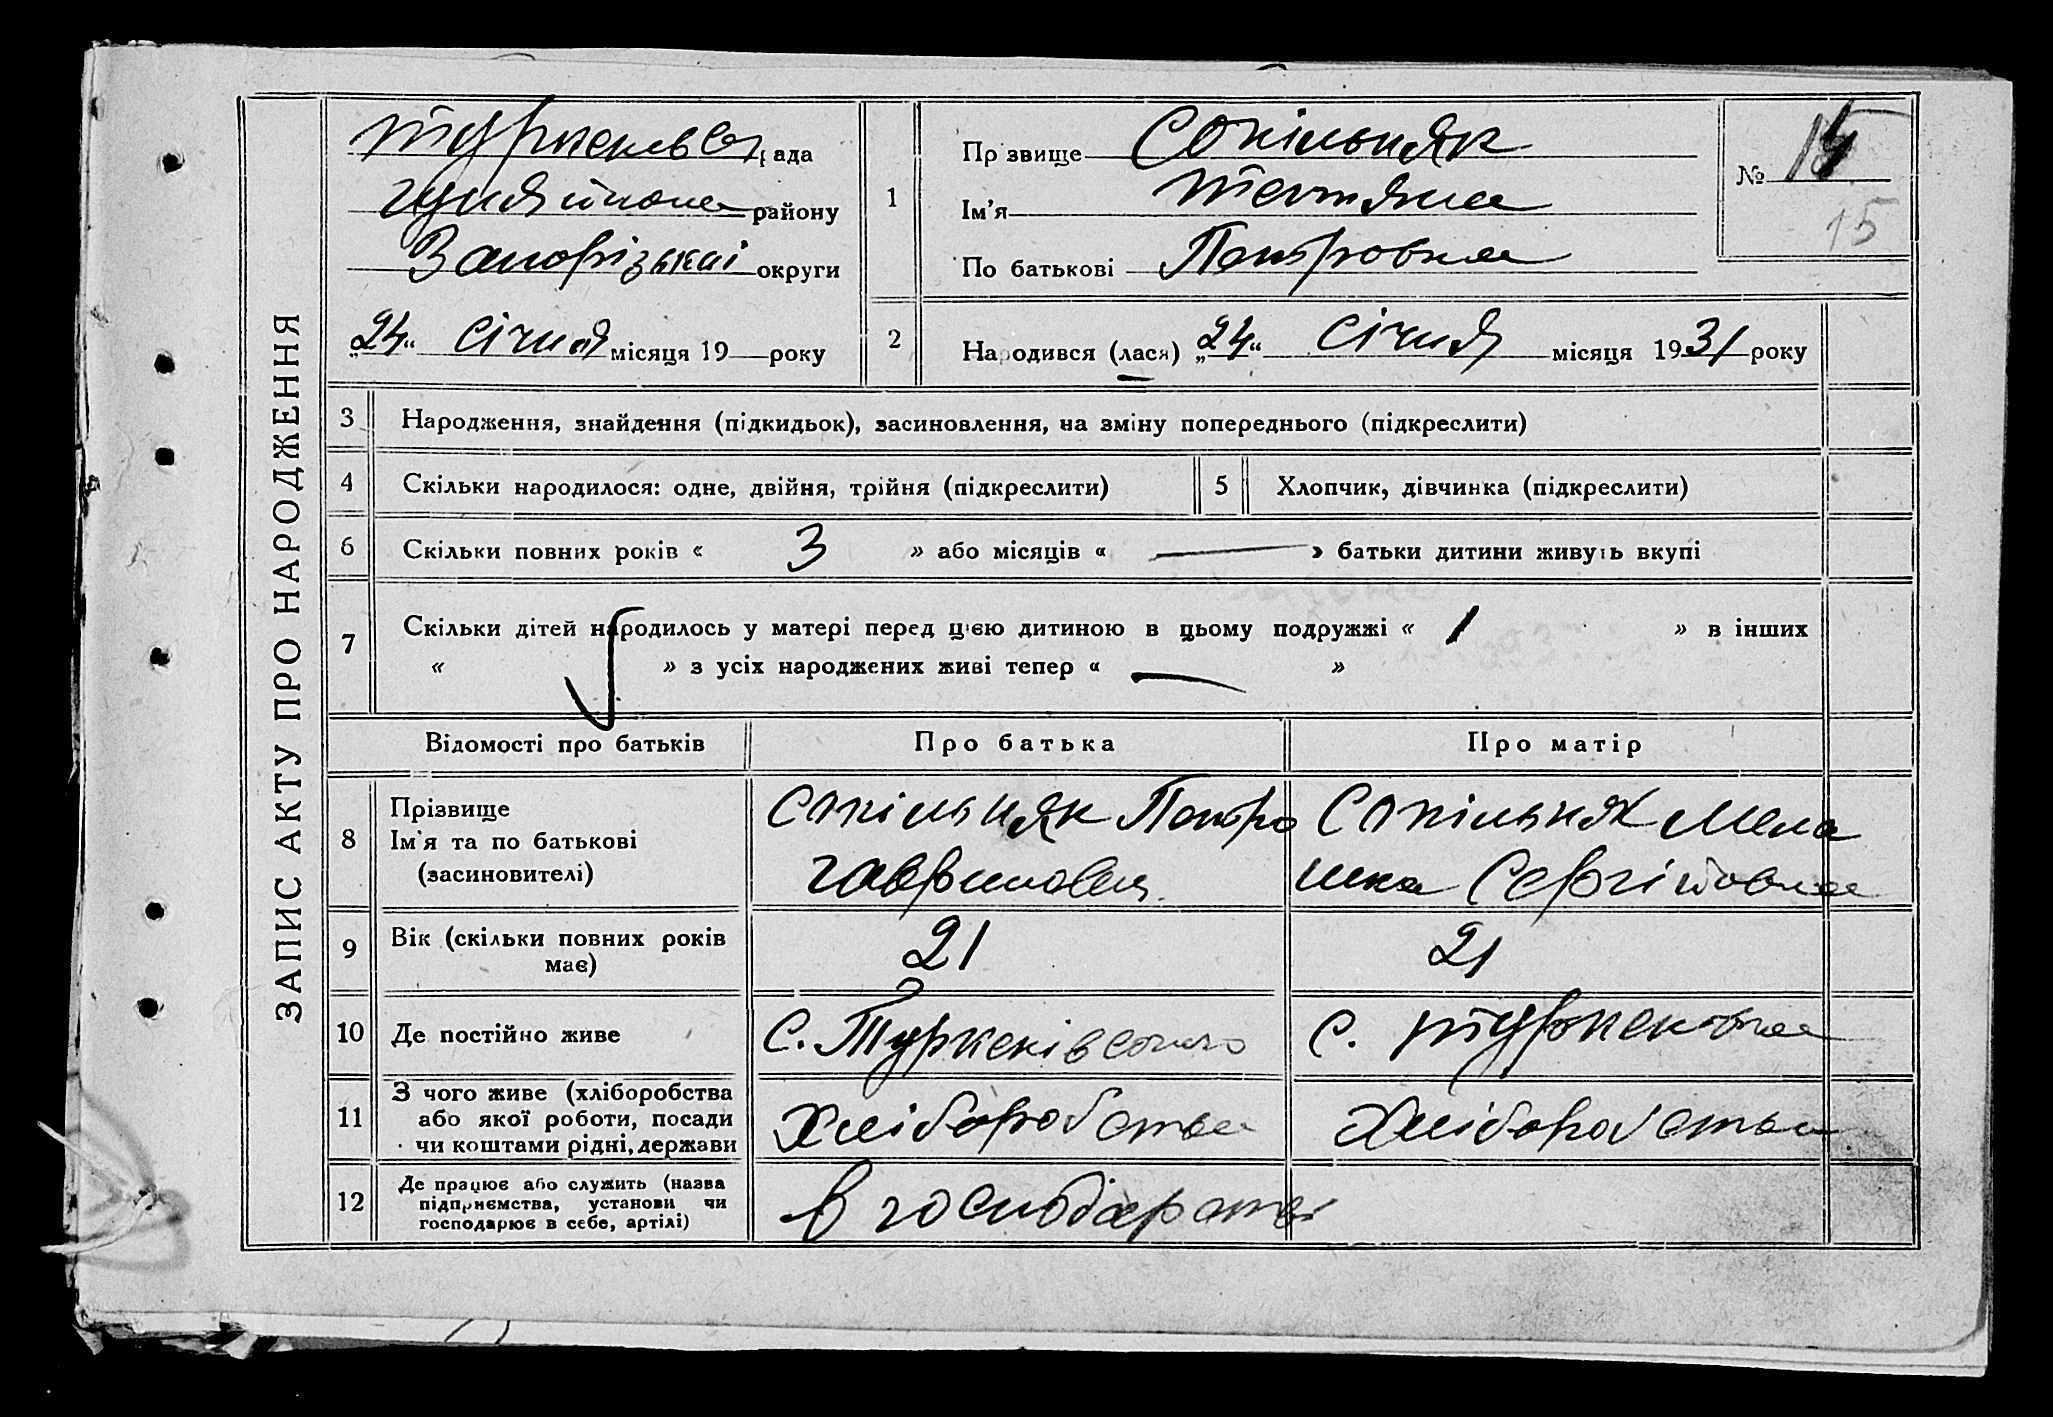 ЗАПИС АКТУ ПРО НАРОДЖЕННЯ
рада
району
Запорізькій округи
„24“ січня місяця 19 року
1
Прізвище Сокільняк
Ім'я Тетяна
По батькові Петровна
№ 15
15
2
Народився (лася) „24“ січня місяця 1931 року
3 Народження, знайдення (підкидьок), засиновлення, на зміну попереднього (підкреслити)
4 Скільки народилося: одне, двійня, трійня (підкреслити)
5 Хлопчик, дівчинка (підкреслити)
6 Скільки повних років « 3 » або місяців « — » батьки дитини живуть вкупі
7 Скільки дітей народилось у матері перед цією дитиною в цьому подружжі « 1 » в інших
« » з усіх народжених живі тепер « — »
Відомості про батьків Про батька Про матір
8 Прізвище
Ім'я та по батькові
(засиновителі)
Сокільняк Петро
Гаврилович
Сокільняк Мела
шка Сергіївна
9 Вік (скільки повних років
має)
21
21
10 Де постійно живе
С. Туркенівсько
С. Туркеновка
11 З чого живе (хліборобства
або якої роботи, посади
чи коштами рідні, держави
Хліборобства
Хліборобства
12 Де працює або служить (назва
підприємства, установи чи
господарює в себе, артілі)
в господарстві